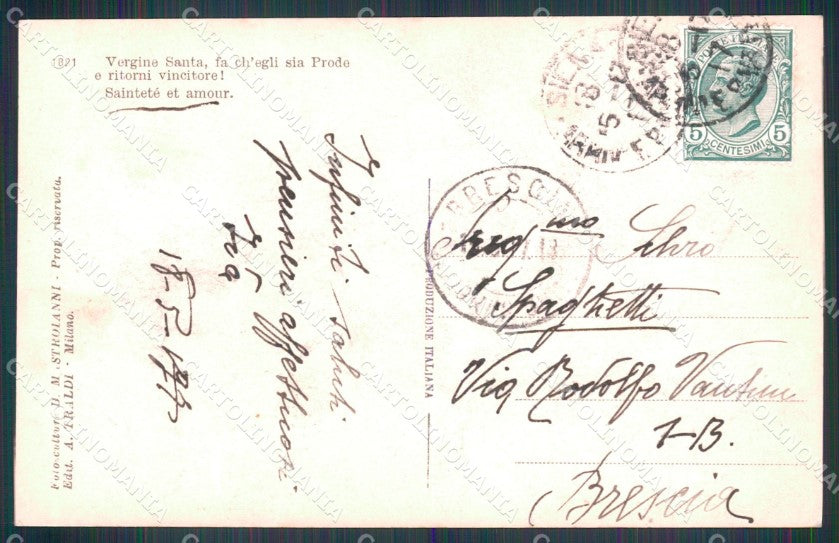 1821 Vergine Santa, fa ch'egli sia Prode
e ritorni vincitore!
Sainteté et amour.
Infiniti saluti
pensieri affettuosi
18-5-
Foto-coltura D. M. STROIANNI - Prop. riservata.
Edit. A. TRALDI - Milano.
PRODUZIONE ITALIANA
SIENA
18
BRESCIA
POSTE ITALIANE
5 CENTESIMI 5
Preg mo
Spaghetti
Via Rodolfo Vantini
1-B.
Brescia
CARTOLINOMANIA